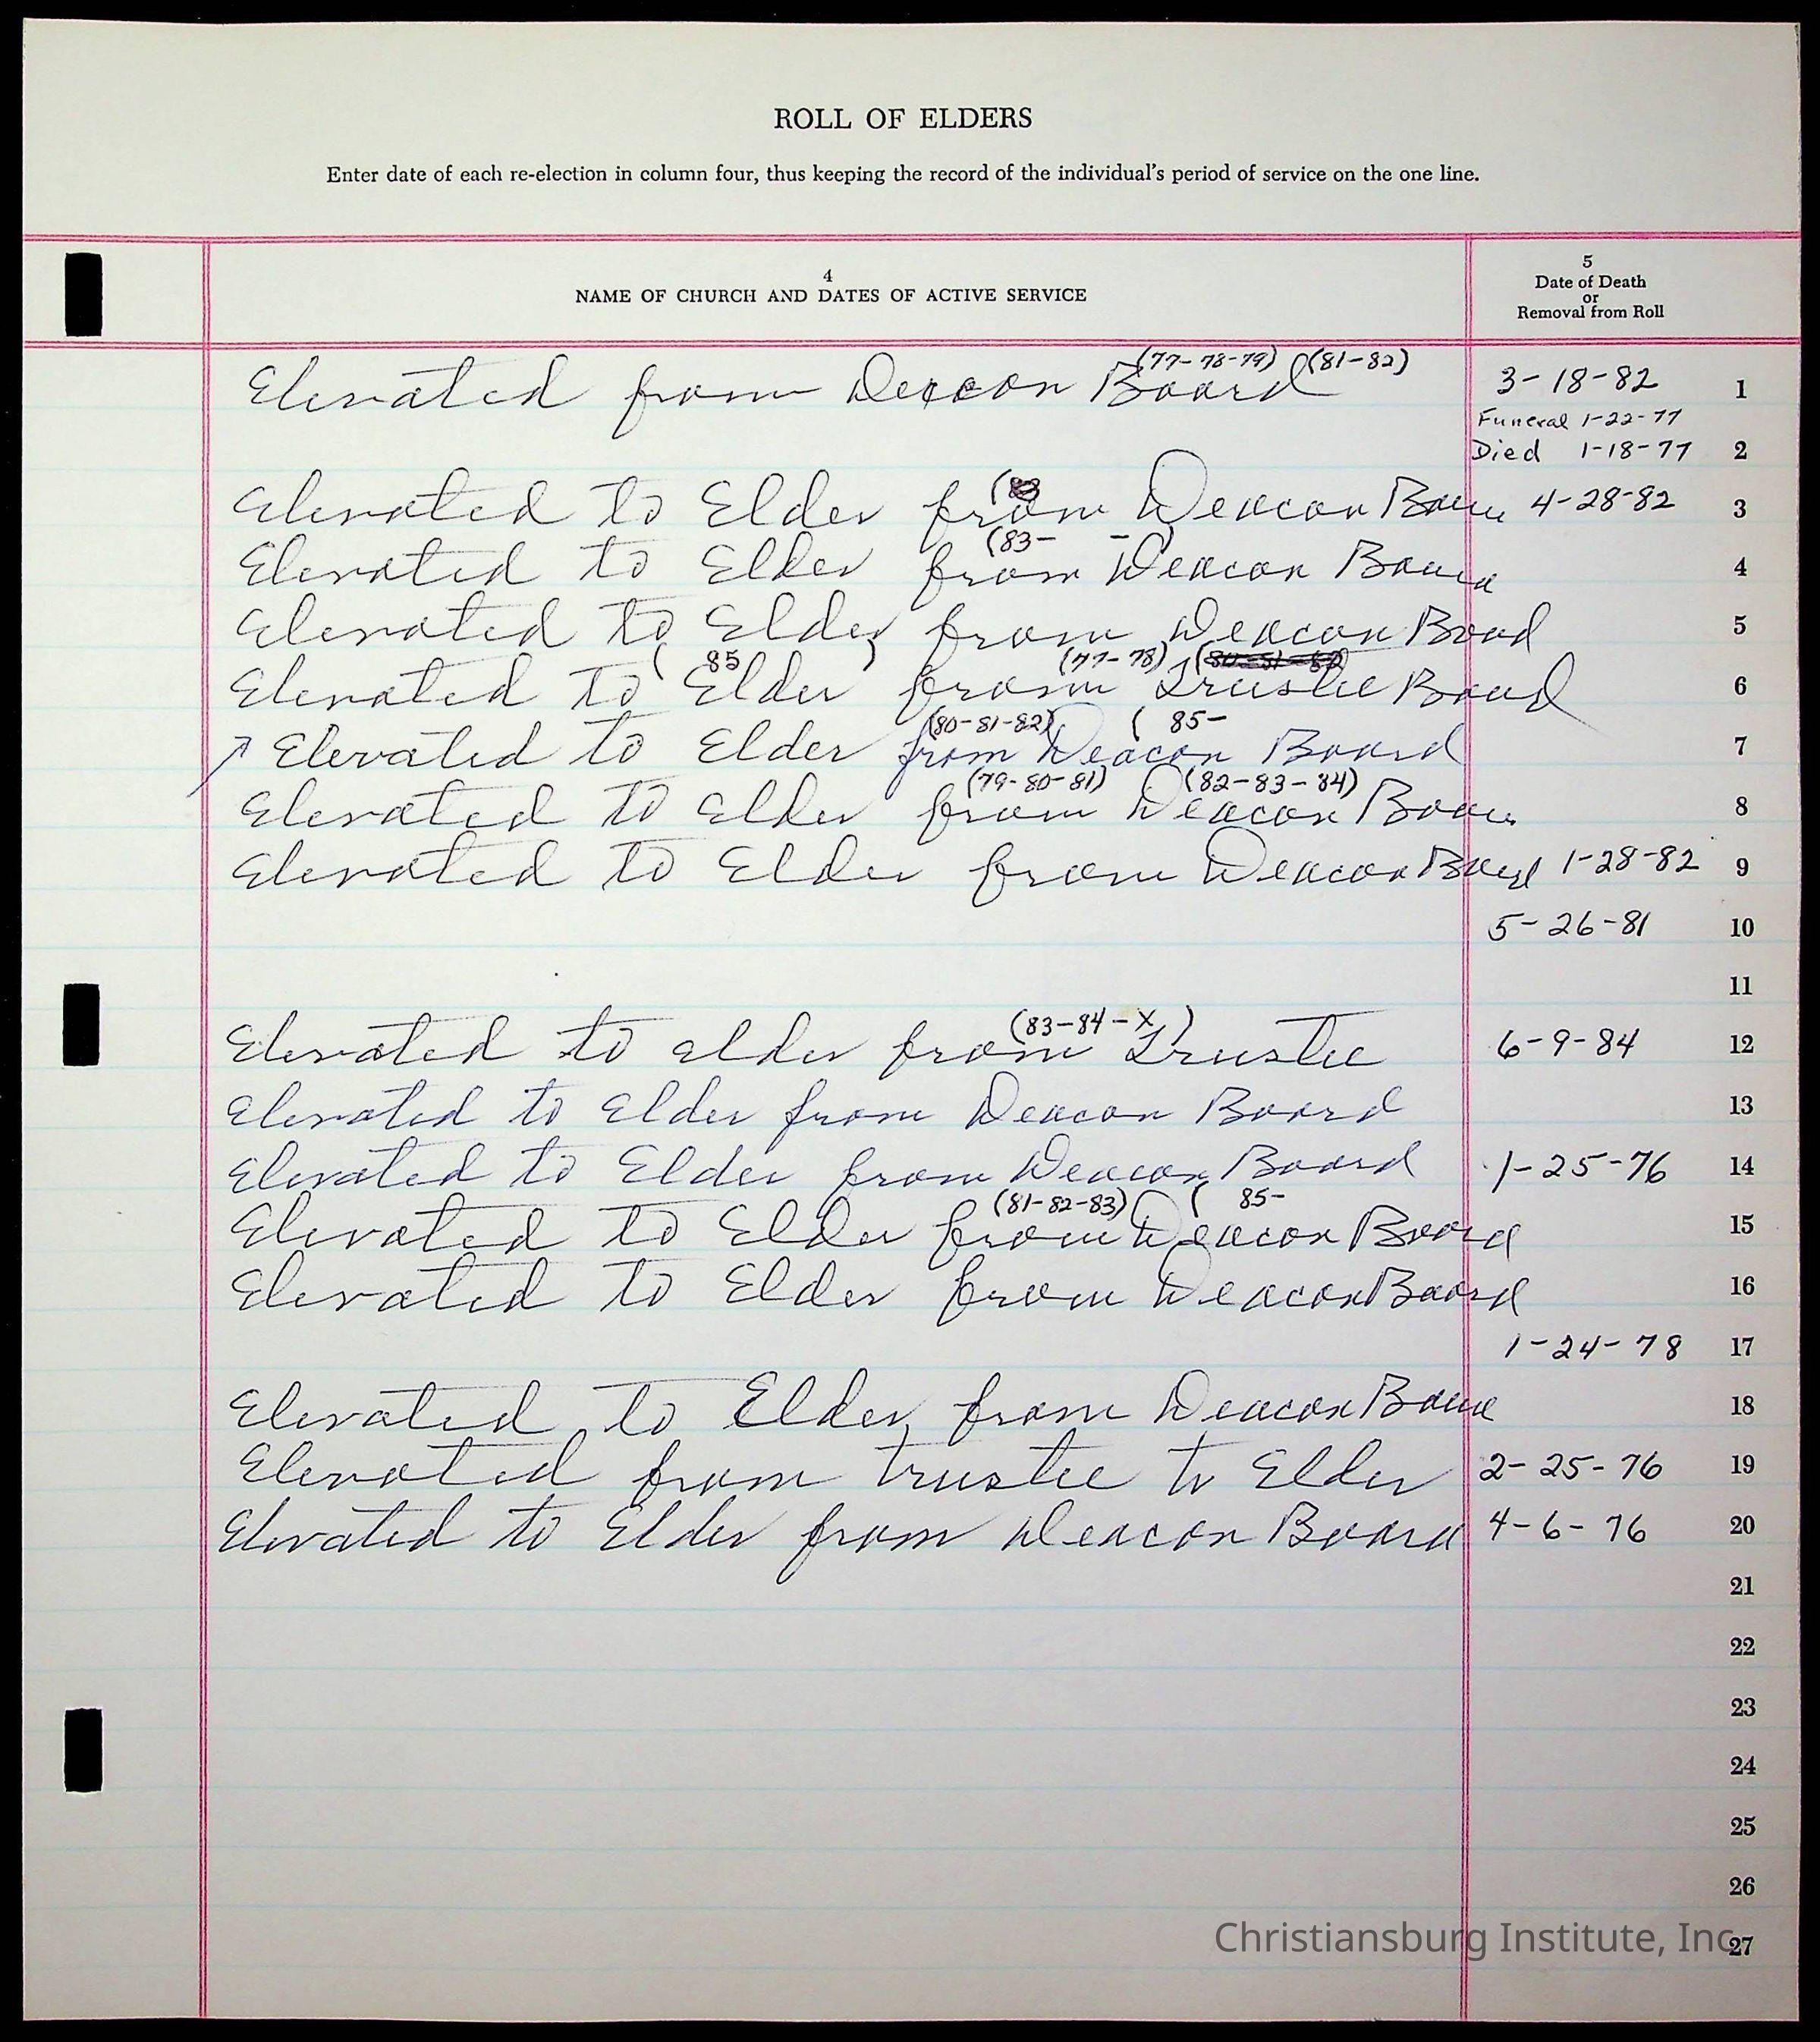 ROLL OF ELDERS
Enter date of each re-election in column four, thus keeping the record of the individual's period of service on the one line.
4
NAME OF CHURCH AND DATES OF ACTIVE SERVICE
5
Date of Death
or
Removal from Roll
(77-78-79) (81-82)
Elevated from Deacon Board 3-18-82 1
Funeral 1-22-77
Died 1-18-77 2
Elevated to Elder from Deacon Board 4-28-82 3
(83- - )
Elevated to Elder from Deacon Board 4
Elevated to Elder from Deacon Board 5
( 85 ) (77-78) (80-81-82)
Elevated to Elder from Trustee Board 6
(80-81-82) ( 85-
Elevated to Elder from Deacon Board 7
(79-80-81) (82-83-84)
Elevated to Elder from Deacon Board 8
Elevated to Elder from Deacon Board 1-28-82 9
5-26-81 10
11
(83-84-X )
Elevated to elder from Trustee 6-9-84 12
Elevated to Elder from Deacon Board 13
Elevated to Elder from Deacon Board 1-25-76 14
(81-82-83) ( 85-
Elevated to Elder from Deacon Board 15
Elevated to Elder from Deacon Board 16
1-24-78 17
Elevated to Elder from Deacon Board 18
Elevated from trustee to Elder 2-25-76 19
Elevated to Elder from Deacon Board 4-6-76 20
21
22
23
24
25
26
Christiansburg Institute, Inc.
27